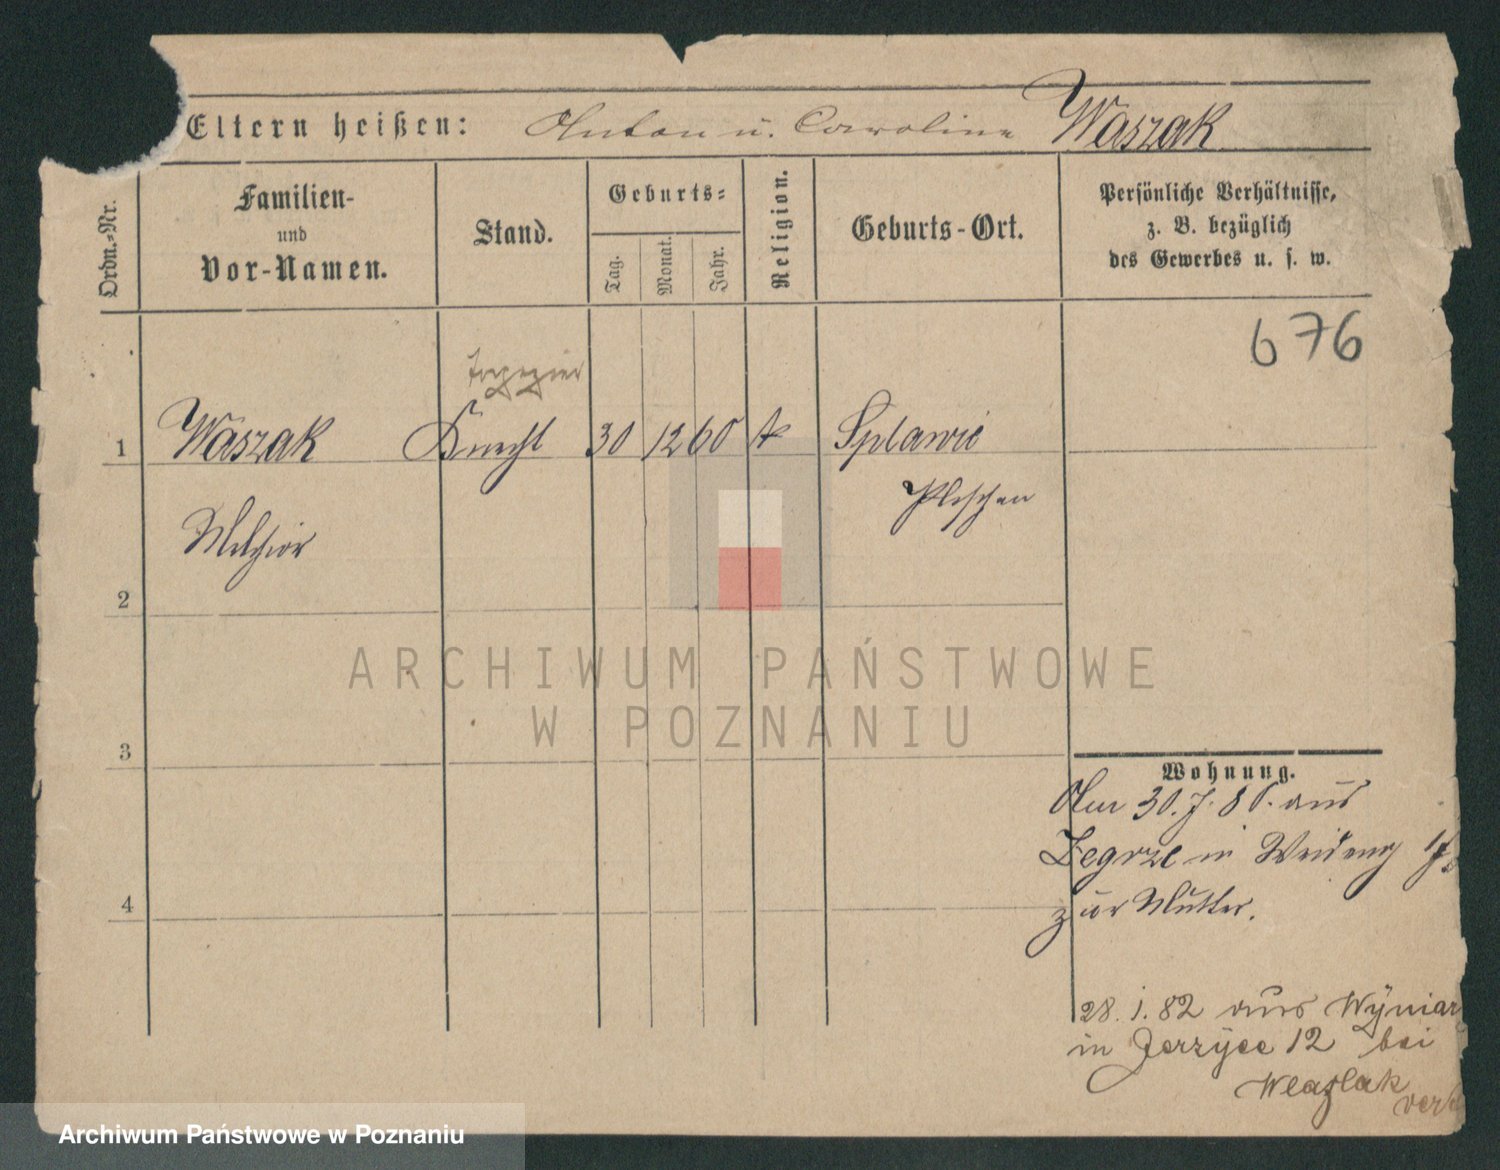 Eltern heißen: Anton u. Caroline Waszak
Ordn.-Nr.
Familien-
und
Vor-Namen.
Stand.
Geburts-
Tag.
Monat.
Jahr.
Religion.
Geburts-Ort.
Persönliche Verhältnisse,
z. B. bezüglich
des Gewerbes u. s. w.
676
1 Waszak Knecht 30 12 60 k Splawie
Pleschen
Melchior
2
3
4
Wohnung.
Am 30. 7. 80. aus
Zegrze in
zur Mutter.
28. 1. 82 aus Wyniar
in Jerzyce 12 bei
ARCHIWUM PAŃSTWOWE
W POZNANIU
Archiwum Państwowe w Poznaniu